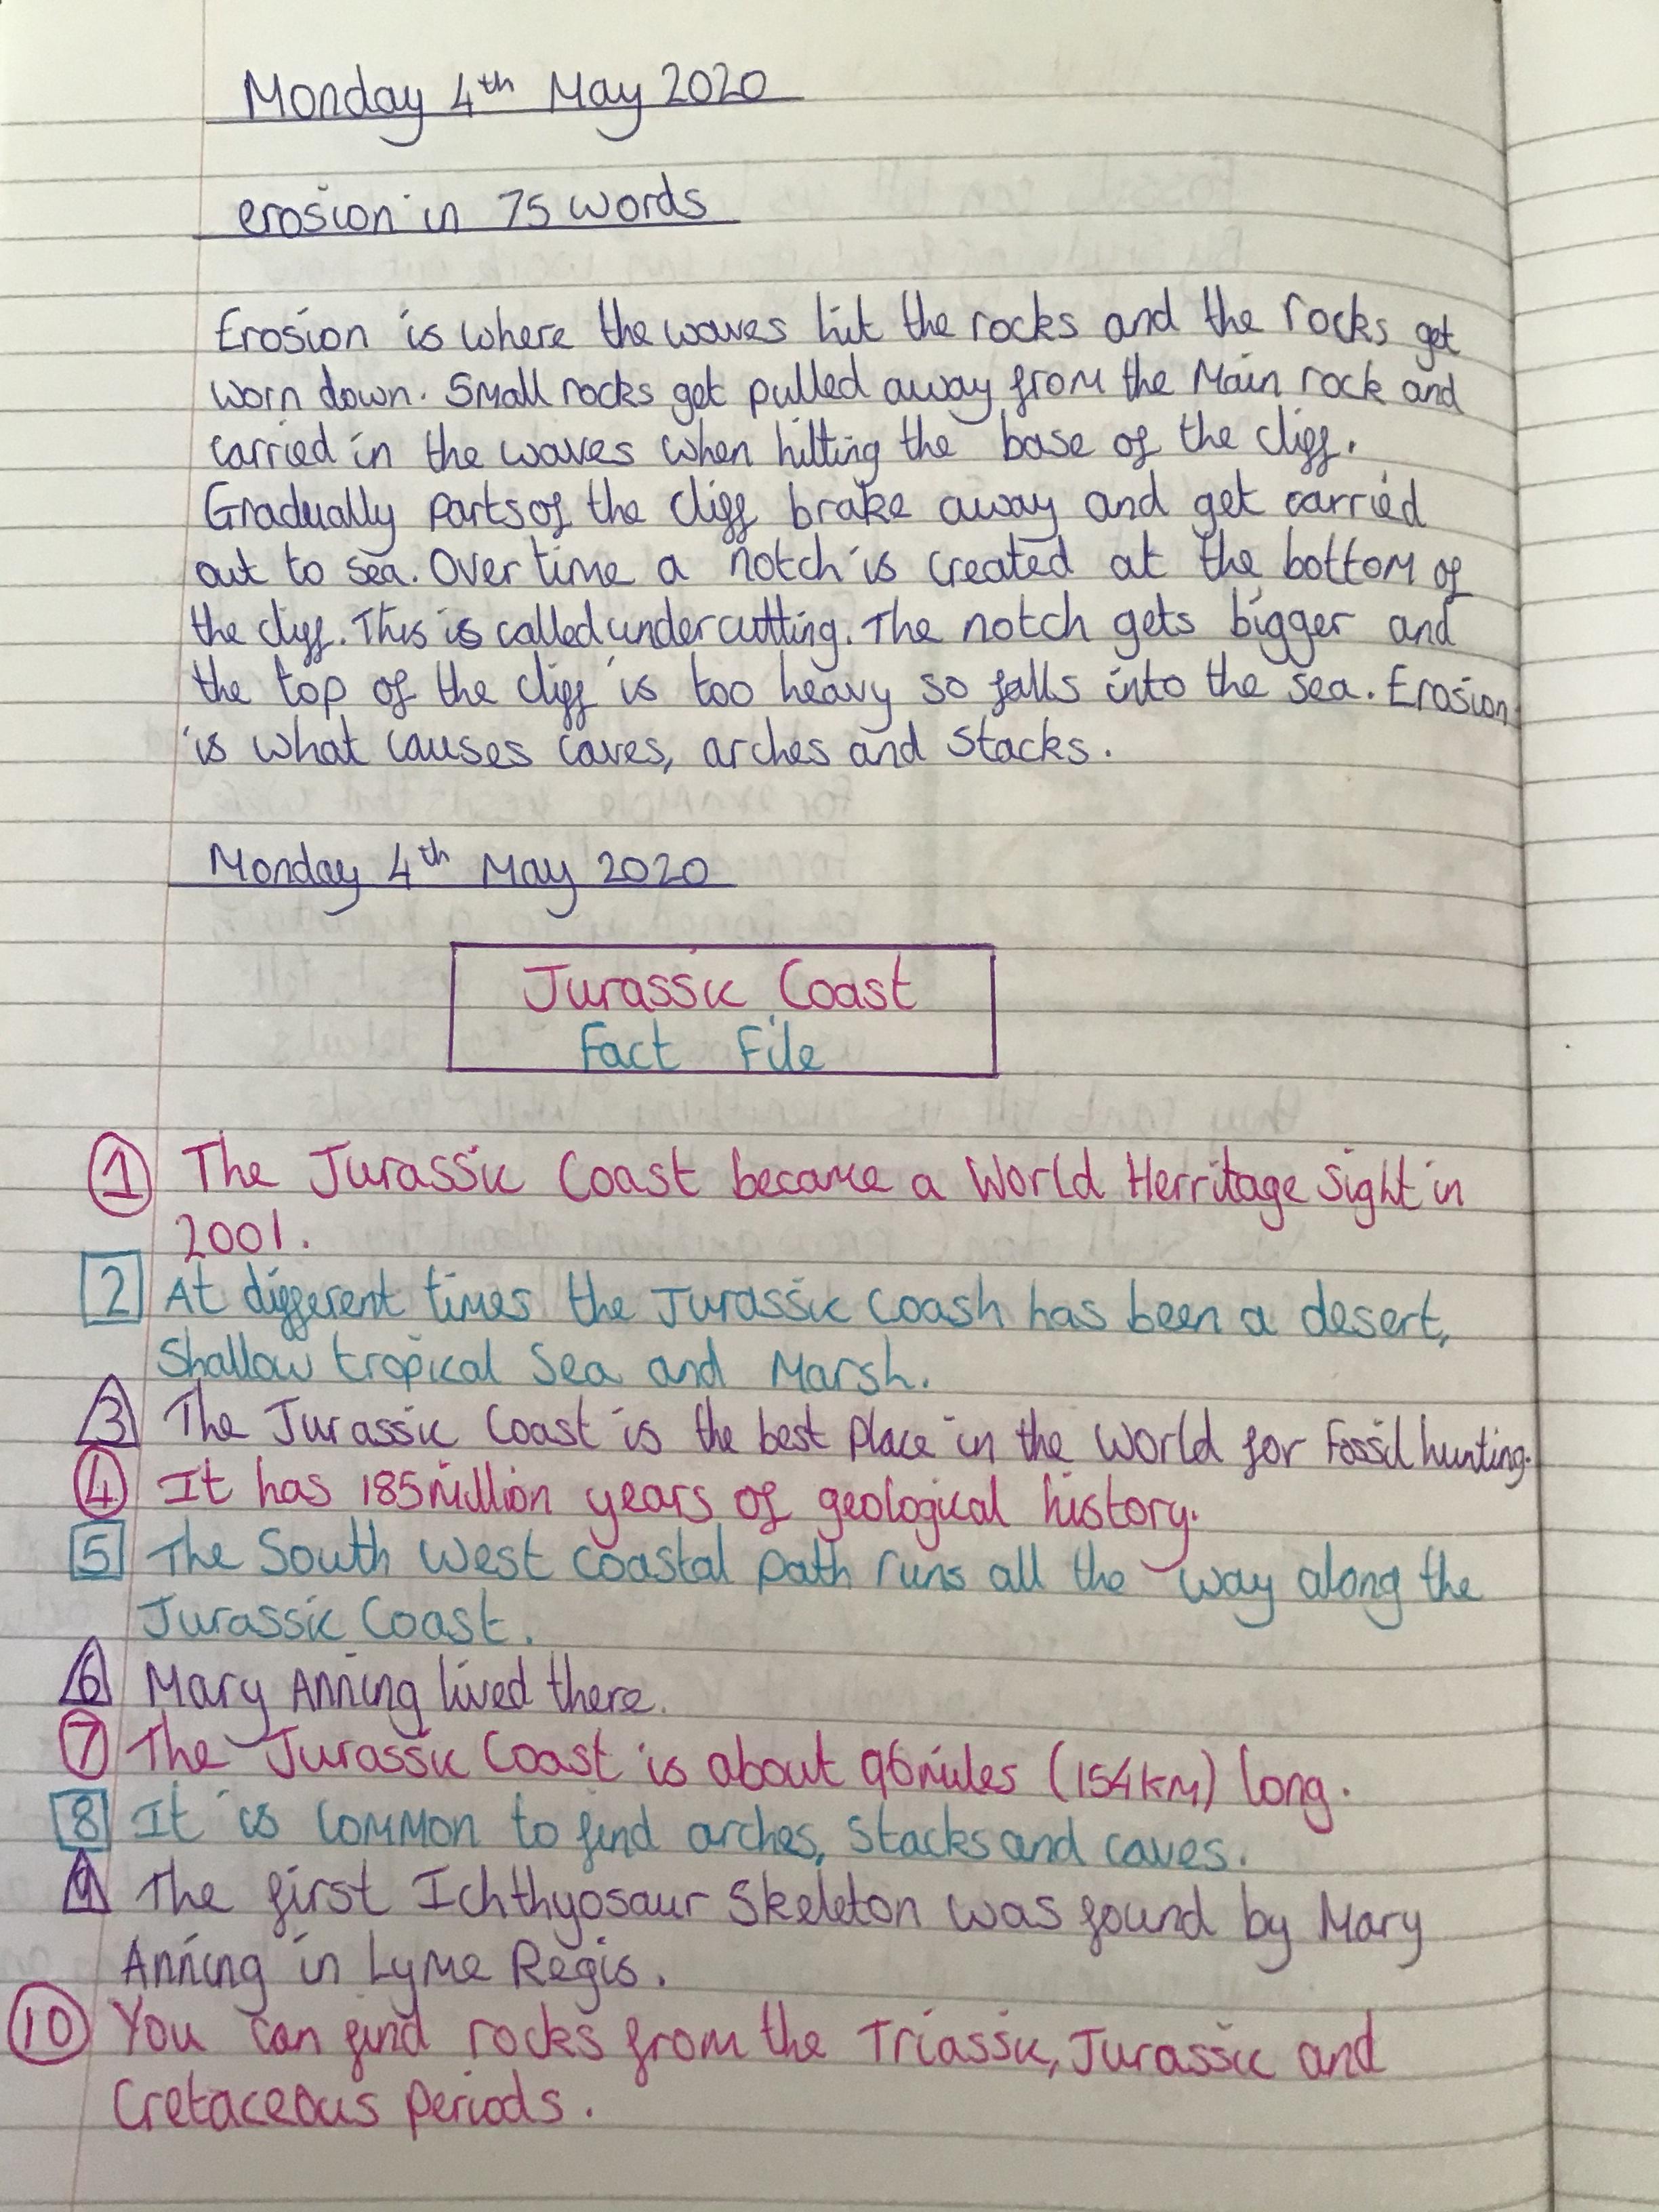 Monday 4th May 2020
erosion in 75 words
Erosion is where the waves hit the rocks and the rocks get
worn down. Small rocks get pulled away from the Main rock and
carried in the waves when hitting the base of the cliff.
Gradually parts of the cliff brake away and get carried
out to sea. Over time a notch is created at the bottom of
the cliff. This is called undercutting. The notch gets bigger and
the top of the cliff is too heavy so falls into the sea. Erosion
is what causes caves, arches and stacks.
Monday 4th May 2020
Jurassic Coast
Fact File
1 The Jurassic Coast became a World Herritage Sight in
2001.
2 At different times the Jurassic Coash has been a desert,
Shallow tropical Sea and Marsh.
3 The Jurassic Coast is the best place in the World for Fossil hunting.
4 It has 185 million years of geological history.
5 The South West Coastal path runs all the way along the
Jurassic Coast.
6 Mary Anning lived there.
7 The Jurassic Coast is about 96 miles (154KM) long.
8 It is common to find arches, Stacks and caves.
9 The first Ichthyosaur Skeleton was found by Mary
Anning in Lyme Regis.
10 You can find rocks from the Triassic, Jurassic and
Cretaceous Periods.